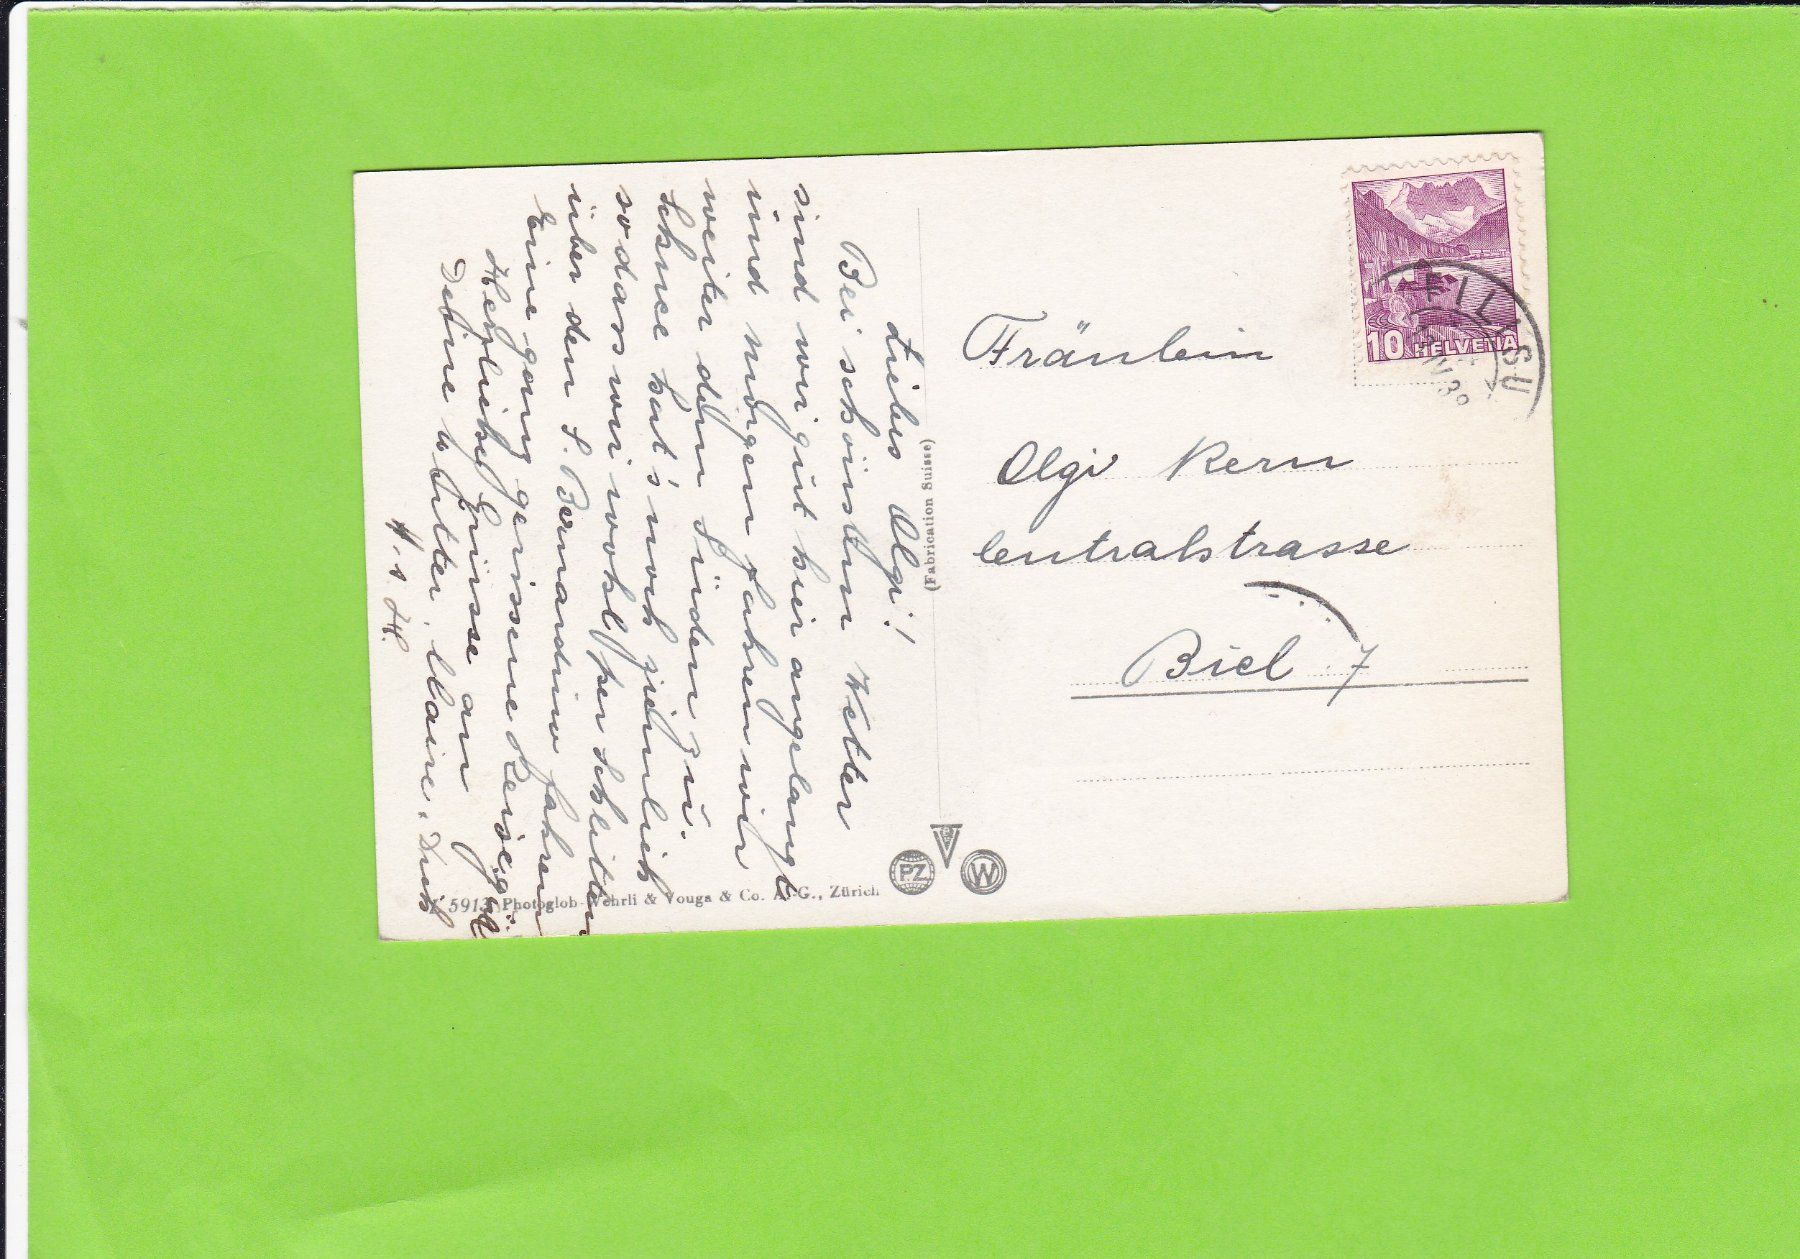 Liebes Olgi!
Bei schönstem Wetter
sind wir gut hier angelangt
und morgen fahren wir
weiter dem Süden zu.
Schnee hat's noch ziemlich
sodass wir wohl per Schlitten
über den S. Bernardino fahren
Eine ganz gerissene Reise, gäll
Herzliche Grüsse an
Deine Mutter,
H. s. H.
(Fabrication Suisse)
5913 Photoglob-Wehrli & Vouga & Co. A.-G., Zürich
PZ
V
W
10 HELVETIA
Fräulein
Olgi Kern
Centralstrasse
Biel 7